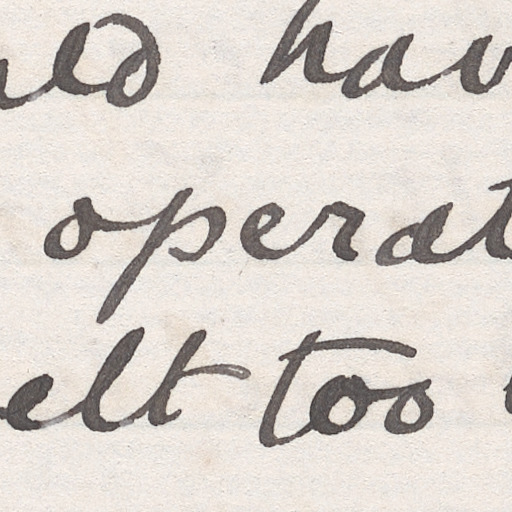 uld hav
operat
elt too